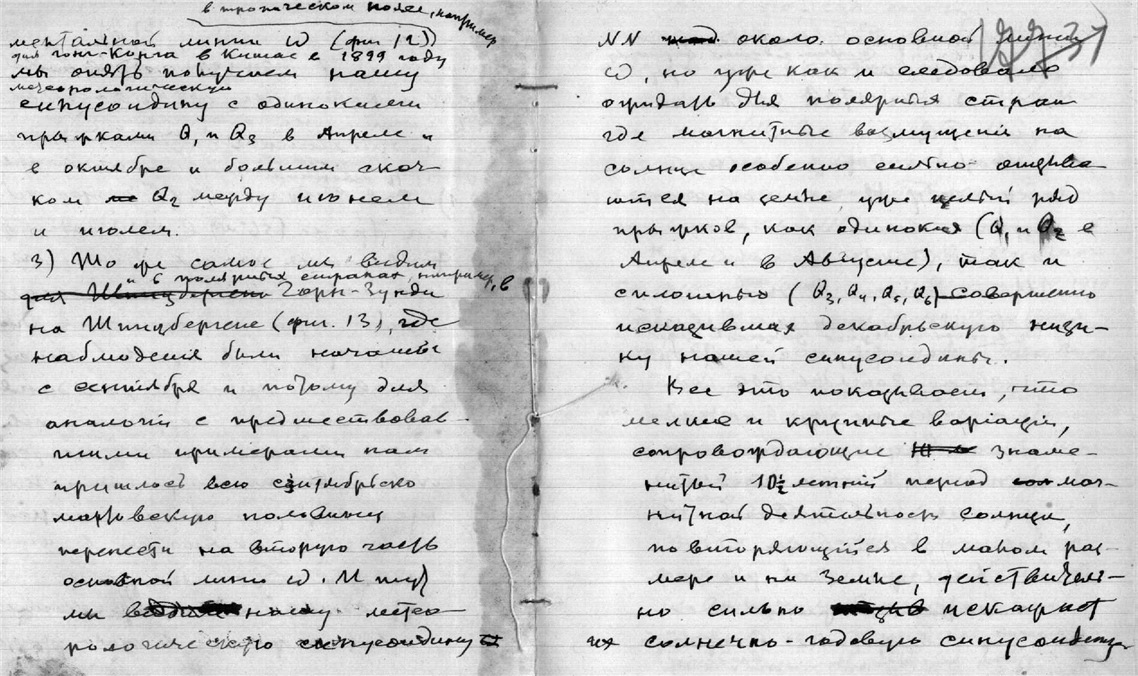 в тропическом поясе, например
ментальной линии ω (фиг 12))
для Гонг-Конга в Китае в 1899 году
мы опять получаем нашу
метеорологическую
синусоидину с одинокими
прыжками Q₁ и Q₃ в Апреле и
в октябре и большим скач-
ком Q₂ между июнем
и июлем.
3) То же самое мы видим
и в полярных странах, например, в
для Шпицбергена Горн-Зунди
на Шпицбергене (фиг. 13), где
наблюдения были начаты
с сентября и потому для
аналогии с предшествовав-
шими примерами нам
пришлось всю сентябрьско
мартовскую половину
перенести на вторую часть
основной линии ω. И тут
мы нашу метео-
рологическую синусоидину
NN около основной линии
137
ω, но уже как и следовало
ожидать для полярных стран
где магнитные возмущения на
солнце особенно сильно отзыва-
ются на земле, уже целый ряд
прыжков, как одинокия (Q₁ и Q₂ в
Апреле и в Августе), так и
сплошные (Q₃, Q₄, Q₅, Q₆) совершенно
исказившия декабрьскую низи-
ну нашей синусоидины.
Все это показывает, что
мелкие и крупные варіаціи,
сопровождающие знаме-
нитый 10½ летний период маг-
нитной деятельности солнца,
повторяющийся в малом раз-
мере и на Земле, действитель-
но сильно искажают
их солнечно-годовую синусоидину